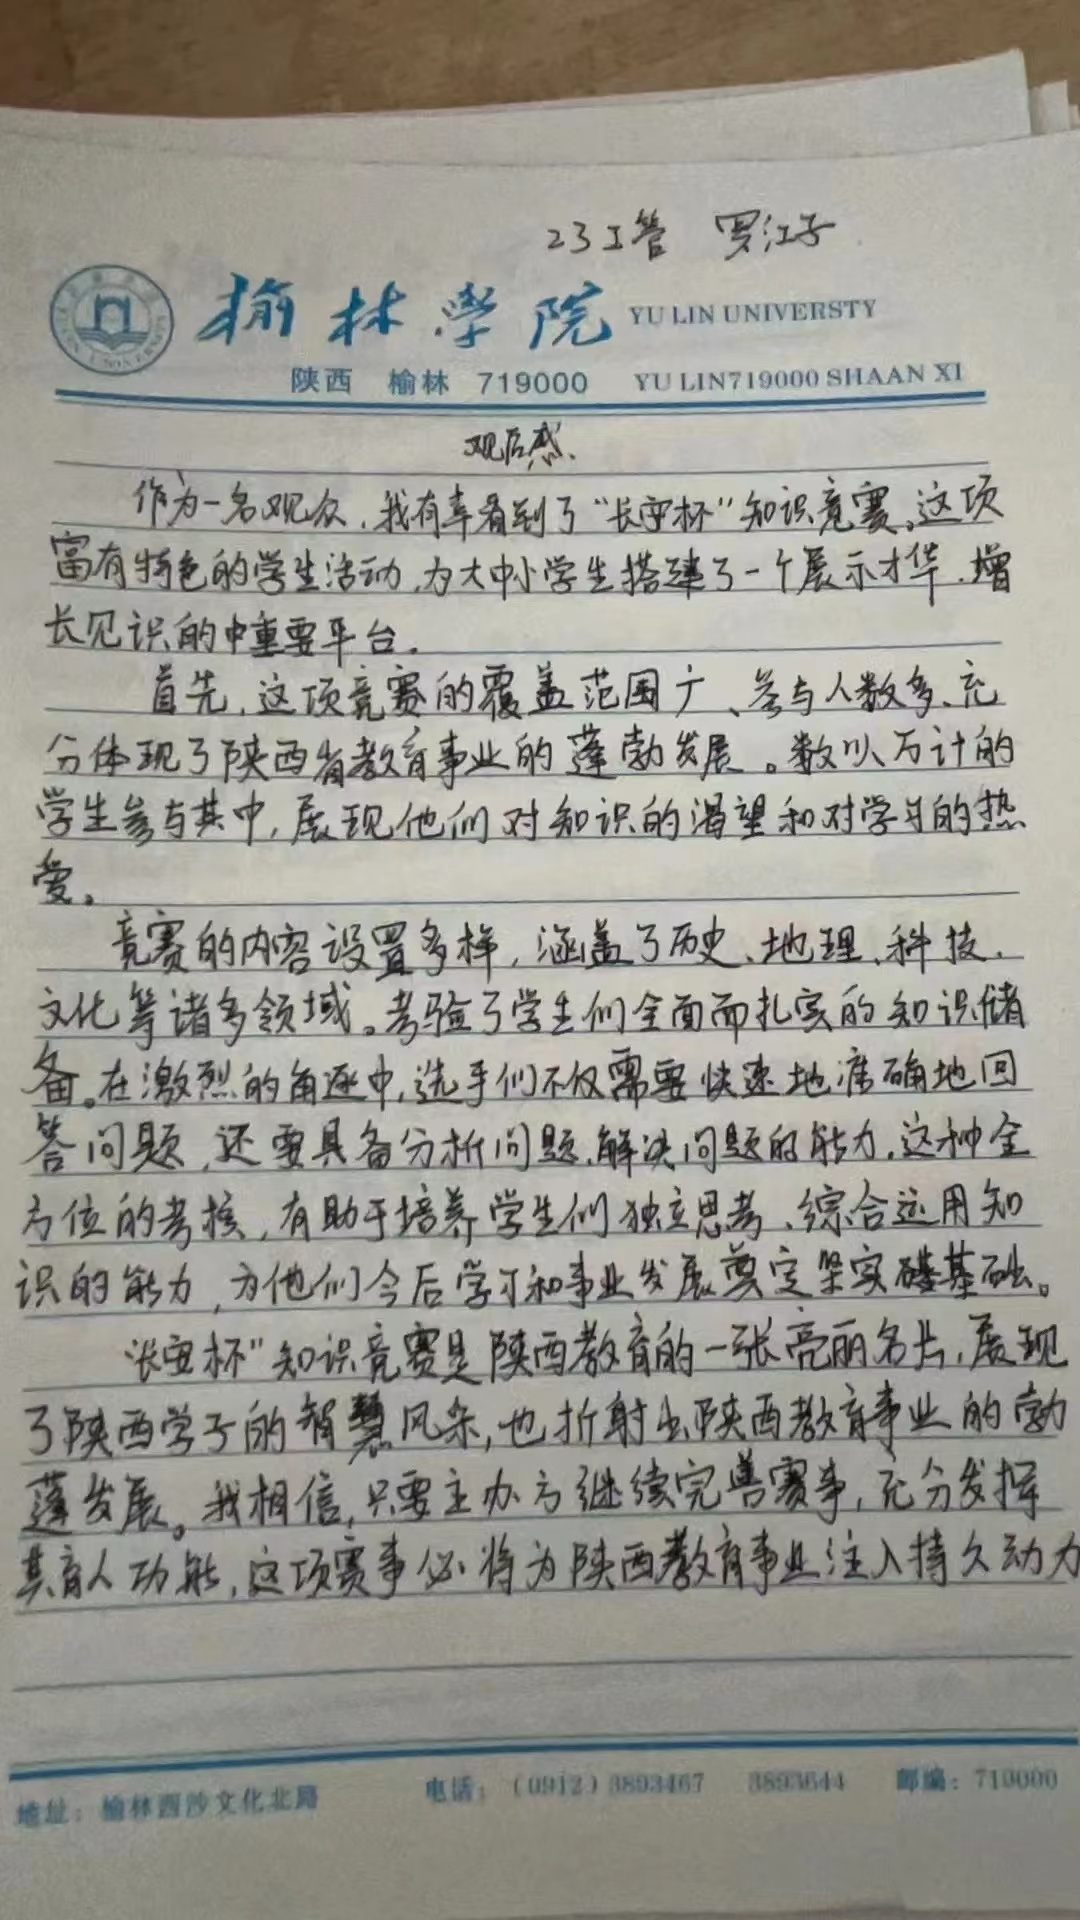 23工管 罗江子
榆林学院 YU LIN UNIVERSTY
陕西 榆林 719000 YU LIN719000 SHAAN XI
观后感.
作为一名观众,我有幸看到了“长安杯”知识竞赛。这项
富有特色的学生活动,为大中小学生搭建了一个展示才华、增
长见识的中重要平台.
首先,这项竞赛的覆盖范围广、参与人数多、充
分体现了陕西省教育事业的蓬勃发展。数以万计的
学生参与其中,展现他们对知识的渴望和对学习的热
爱。
竞赛的内容设置多样,涵盖了历史、地理、科技、
文化等诸多领域。考验了学生们全面而扎实的知识储
备。在激烈的角逐中,选手们不仅需要快速地准确地回
答问题,还要具备分析问题、解决问题的能力.这种全
方位的考核,有助于培养学生们独立思考、综合运用知
识的能力,为他们今后学习和事业发展奠定坚实基础。
“长安杯”知识竞赛是陕西教育的一张亮丽名片,展现
了陕西学子的智慧风采,也折射出陕西教育事业的勃
蓬发展。我相信,只要主办方继续完善赛事,充分发挥
其育人功能,这项赛事必将为陕西教育事业注入持久动力
地址:榆林西沙文化北路 电话:(0912)3893467 3893644 邮编:719000